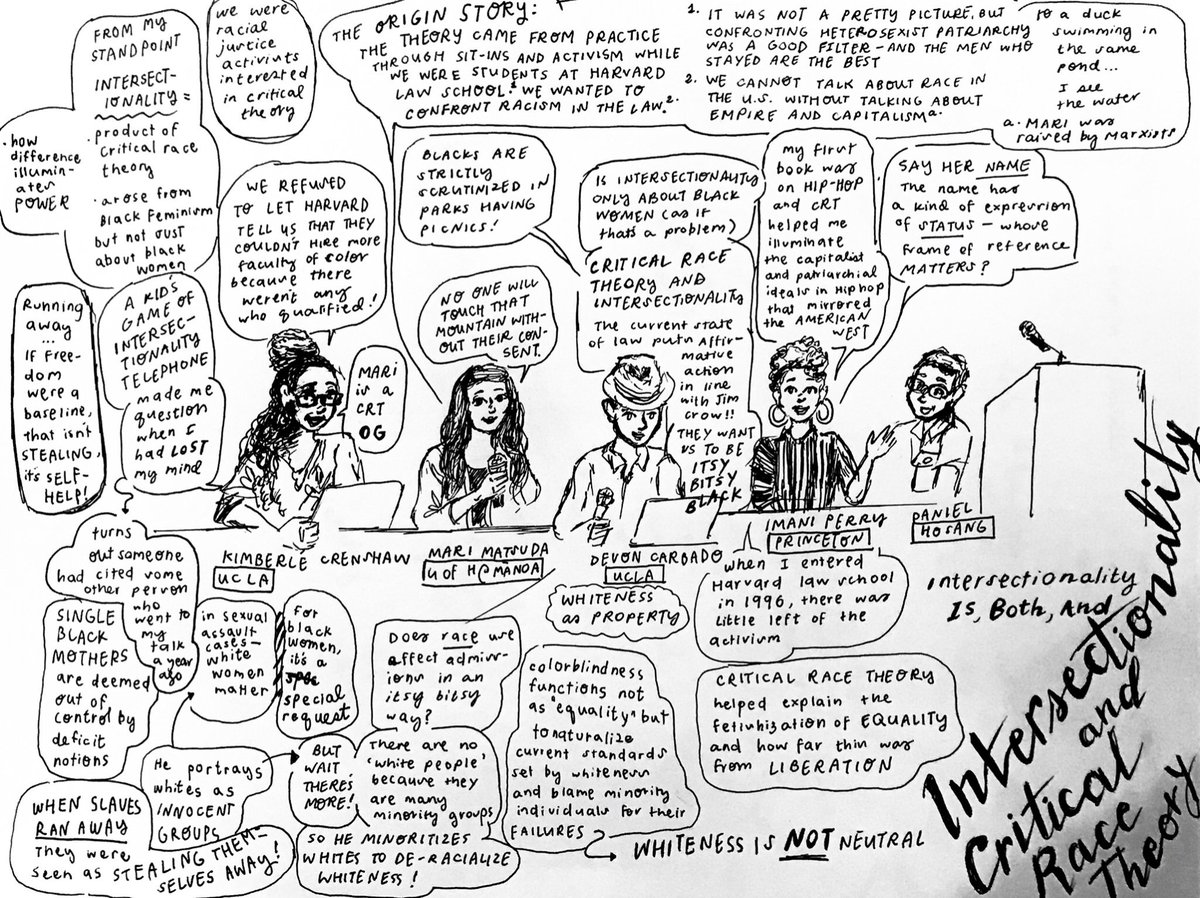 FROM MY
STANDPOINT
INTERSECT-
IONALITY =
• product of
critical race
theory
• arose from
Black Feminism
but not just
about black
women
• how
difference
illumin-
ates
POWER
we were
racial
justice
activists
interested
in critical
theory
THE ORIGIN STORY:
THE THEORY CAME FROM PRACTICE
THROUGH SIT-INS AND ACTIVISM WHILE
WE WERE STUDENTS AT HARVARD
LAW SCHOOL.¹ WE WANTED TO
CONFRONT RACISM IN THE LAW.².
1. IT WAS NOT A PRETTY PICTURE, BUT
CONFRONTING HETEROSEXIST PATRIARCHY
WAS A GOOD FILTER - AND THE MEN WHO
STAYED ARE THE BEST
2. WE CANNOT TALK ABOUT RACE IN
THE U.S. WITHOUT TALKING ABOUT
EMPIRE AND CAPITALISM ᵃ.
to a duck
swimming in
the same
pond...
I see
the water
a. MARI was
raised by Marxists
WE REFUSED
TO LET HARVARD
TELL US THAT THEY
COULDN'T HIRE MORE
faculty of color
because there
weren't any
who qualified!
BLACKS ARE
STRICTLY
SCRUTINIZED IN
PARKS HAVING
PICNICS!
IS INTERSECTIONALITY
ONLY ABOUT BLACK
WOMEN (as if
that's a problem)
my first
book was
on HIP-HOP
and CRT
helped me
illuminate
the capitalist
and patriarchial
ideals in Hiphop
that mirrored
the AMERICAN
WEST
SAY HER NAME
The name has
a kind of expression
of STATUS - whose
frame of reference
MATTERS?
Running
away
...
If free-
dom
were a
baseline,
that isn't
STEALING,
it's SELF-
HELP!
A KID'S
GAME OF
INTERSEC-
TIONALITY
TELEPHONE
made me
question
when I
had LOST
my mind
MARI
is a
CRT
OG
NO ONE WILL
TOUCH THAT
MOUNTAIN WITH-
OUT THEIR CON-
SENT.
CRITICAL RACE
THEORY AND
INTERSECTIONALITY
The current state
of law puts Affir-
mative
action
in line
with Jim
Crow!!
THEY WANT
US TO BE
ITSY
BITSY
BLACK
KIMBERLE CRENSHAW
UCLA
MARI MATSUDA
U of H@MANOA
DEVON CARBADO
UCLA
IMANI PERRY
PRINCETON
DANIEL
HOSANG
turns
out someone
had cited some
other person
who
went to
my
talk
a year
ago
SINGLE
BLACK
MOTHERS
are deemed
out of
control by
deficit
notions
in sexual
assault
cases-
white
women
matter
For
black
women,
it's a
special
request
Does race use
affect admiss-
ions in an
itsy bitsy
way?
WHITENESS
as PROPERTY
when I entered
Harvard law school
in 1996, there was
little left of the
activism
Intersectionality
Is, Both, And
colorblindness
functions not
as "equality" but
to naturalize
current standards
set by whiteness
and blame minority
individuals for their
FAILURES
CRITICAL RACE THEORY
helped explain the
fetishization of EQUALITY
and how far this was
from LIBERATION
He portrays
whites as
INNOCENT
GROUPS
BUT
WAIT
THERE'S
MORE!
There are no
'white people'
because they
are many
minority groups
WHEN SLAVES
RAN AWAY
They were
seen as STEALING THEM-
SELVES AWAY!
SO HE MINORITIZES
WHITES TO DE-RACIALIZE
WHITENESS!
WHITENESS IS NOT NEUTRAL
Intersectionality
and
Critical
Race
Theory